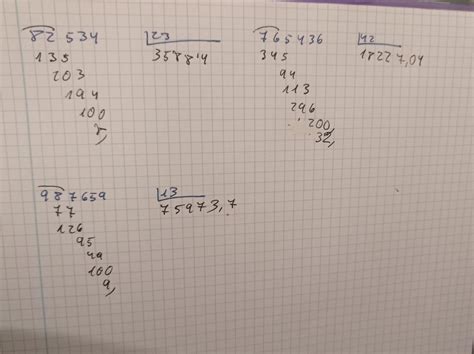 82534 23 765436 42
135 3588'4 345 18227,04
203 94
194 113
100 296
8, 200,
32,
987659 13
77 75973,7
126
95
49
100
9,